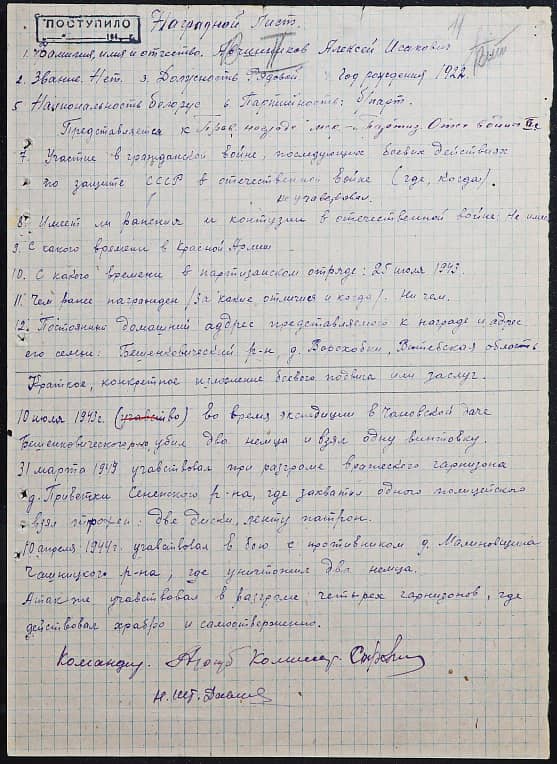 ПОСТУПИЛО
Наградной Лист.
11
1. Фамилия, имя и отчество. Алексей Исакович
2. Звание. Нет. 3. Должность Рядовой Год рождения 1922.
5 Национальность белорус 6 Партийность: б/парт.
Представляется к Прав. награде мед. - Партиз. Отеч. войны
7. Участие в гражданской войне, последующих боевых действиях
по защите СССР в отечественной войне (где, когда).
не учавствовал.
8. Имеет ли ранения и контузии в отечественной войне: Не имеет
9. С какого времени в Красной Армии
10. С какого времени в партизанском отряде: 25 июля 1943.
11. Чем ранее награжден /за какие отличия и когда/. Ни чем.
12. Постоянный домашний аддрес представляемого к награде и адрес
его семьи: Бешенковический р-н, д. Витебская область
Краткое, конкретное изложение боевого подвига или заслуг.
10 июля 1943г. во время экспедиции в даче
Бешенковического р-на, убил два немца и взял одну винтовку.
31 марта 1944 учавствовал при разгроме вражеского гарнизона
д. Приветки Сененского р-на, где захватил одного полицейского
взял трофеи: две диски, ленту патрон.
10 апреля 1944г. учавствовал в бою с противником д. Малиновщина
Чашницкого р-на, где уничтожил два немца.
А так же учавствовал в разгроме четырех гарнизонов, где
действовал храбро и самоотверженно.
Командир. Комиссар.
Н. шт.